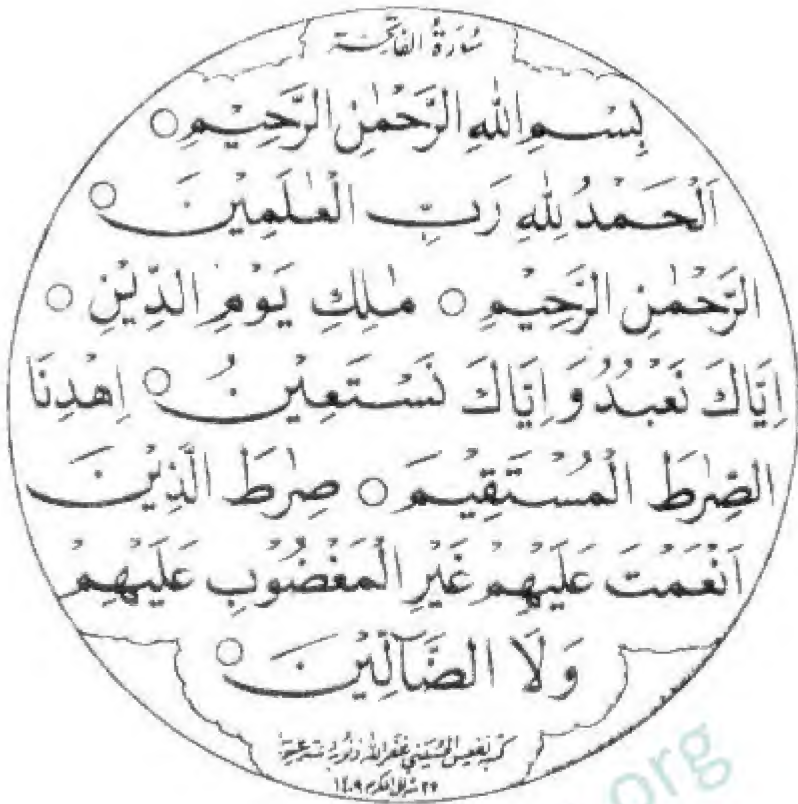 سُورَةُ الفَاتِحَة
بِسْمِ اللهِ الرَّحْمٰنِ الرَّحِيْمِ ○
اَلْحَمْدُ لِلهِ رَبِّ الْعٰلَمِيْنَ ○
الرَّحْمٰنِ الرَّحِيْمِ ○ مٰلِكِ يَوْمِ الدِّيْنِ ○
اِيَّاكَ نَعْبُدُ وَاِيَّاكَ نَسْتَعِيْنُ ○ اِهْدِنَا
الصِّرٰطَ الْمُسْتَقِيْمَ ○ صِرٰطَ الَّذِيْنَ
اَنْعَمْتَ عَلَيْهِمْ غَيْرِ الْمَغْضُوْبِ عَلَيْهِمْ
وَلَا الضَّآلِّيْنَ ○
كتبه نفيس الحسيني غفر الله ذنوبه
٢٢ شوال المكرم ١٤٠٩
org